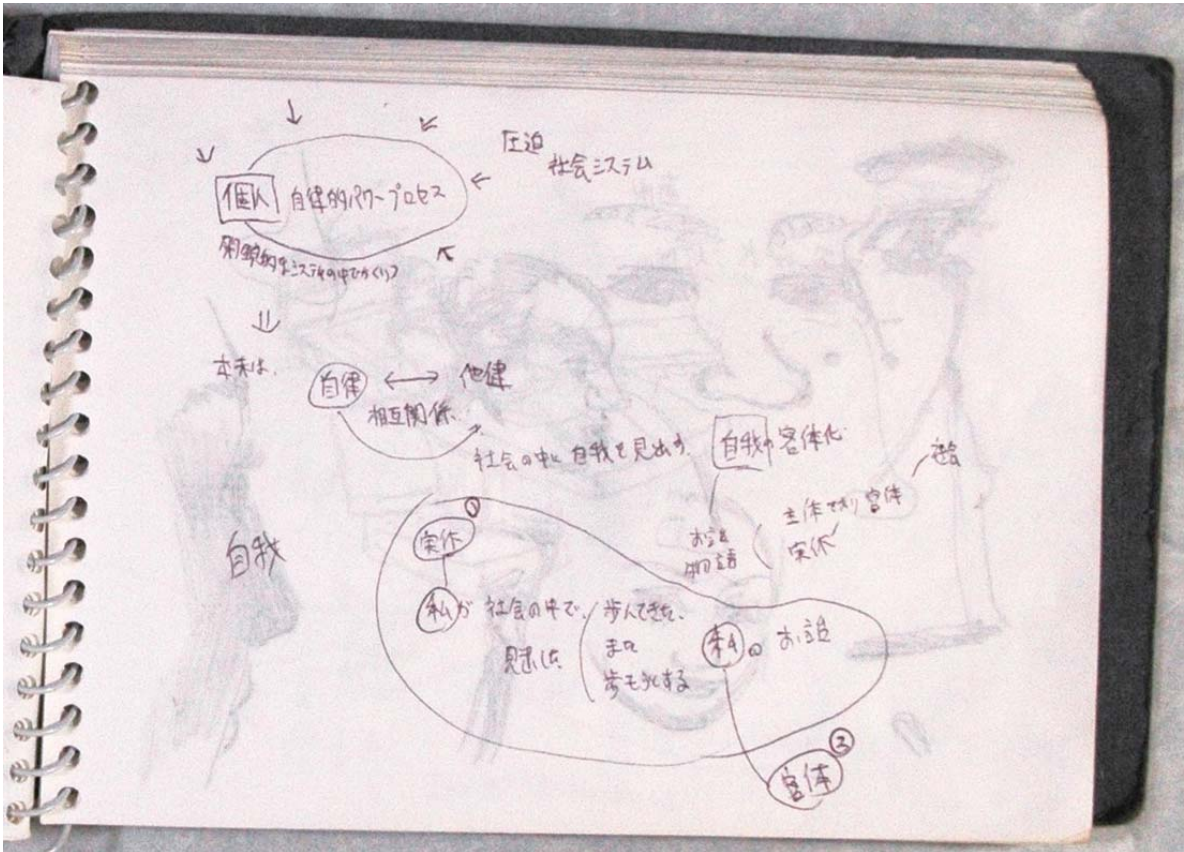 圧迫
社会システム
個人 自律的パワープロセス
システムの中で
本来は、
自律 ⟷ 他律
相互関係
社会の中に自我を見出す、
自我の客体化
主体であり客体
実体
お話
物語
自我
①
実体
私が 社会の中で、
歩んできた、
また
歩もうとする
私の お話
②
客体